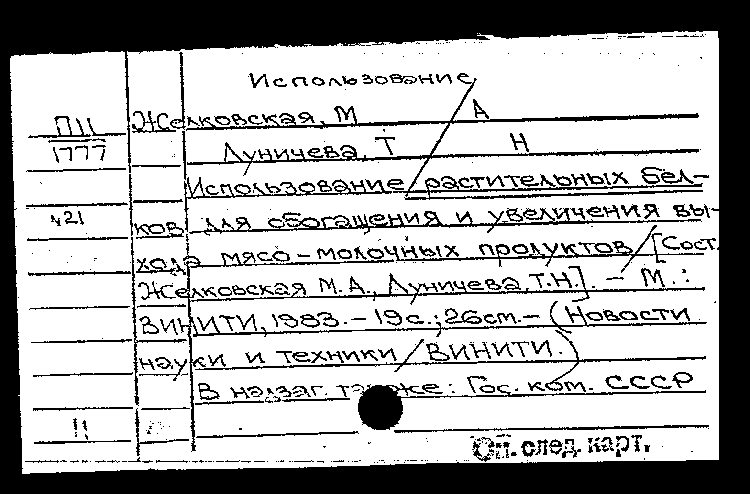 Использование
П11 Желковская, М А
1777 Луничева, Т Н
Использование/растительных бел-
421 ков для обогащения и увеличения вы-
хода мясо-молочных продуктов/[Сост.
Желковская М.А., Луничева, Т.Н]. - М.:
ВИНИТИ, 1983. - 19с.; 26см. - (Новости
науки и техники/ВИНИТИ.)
В надзаг. также: Гос. ком. СССР
11
Оп. след. карт.